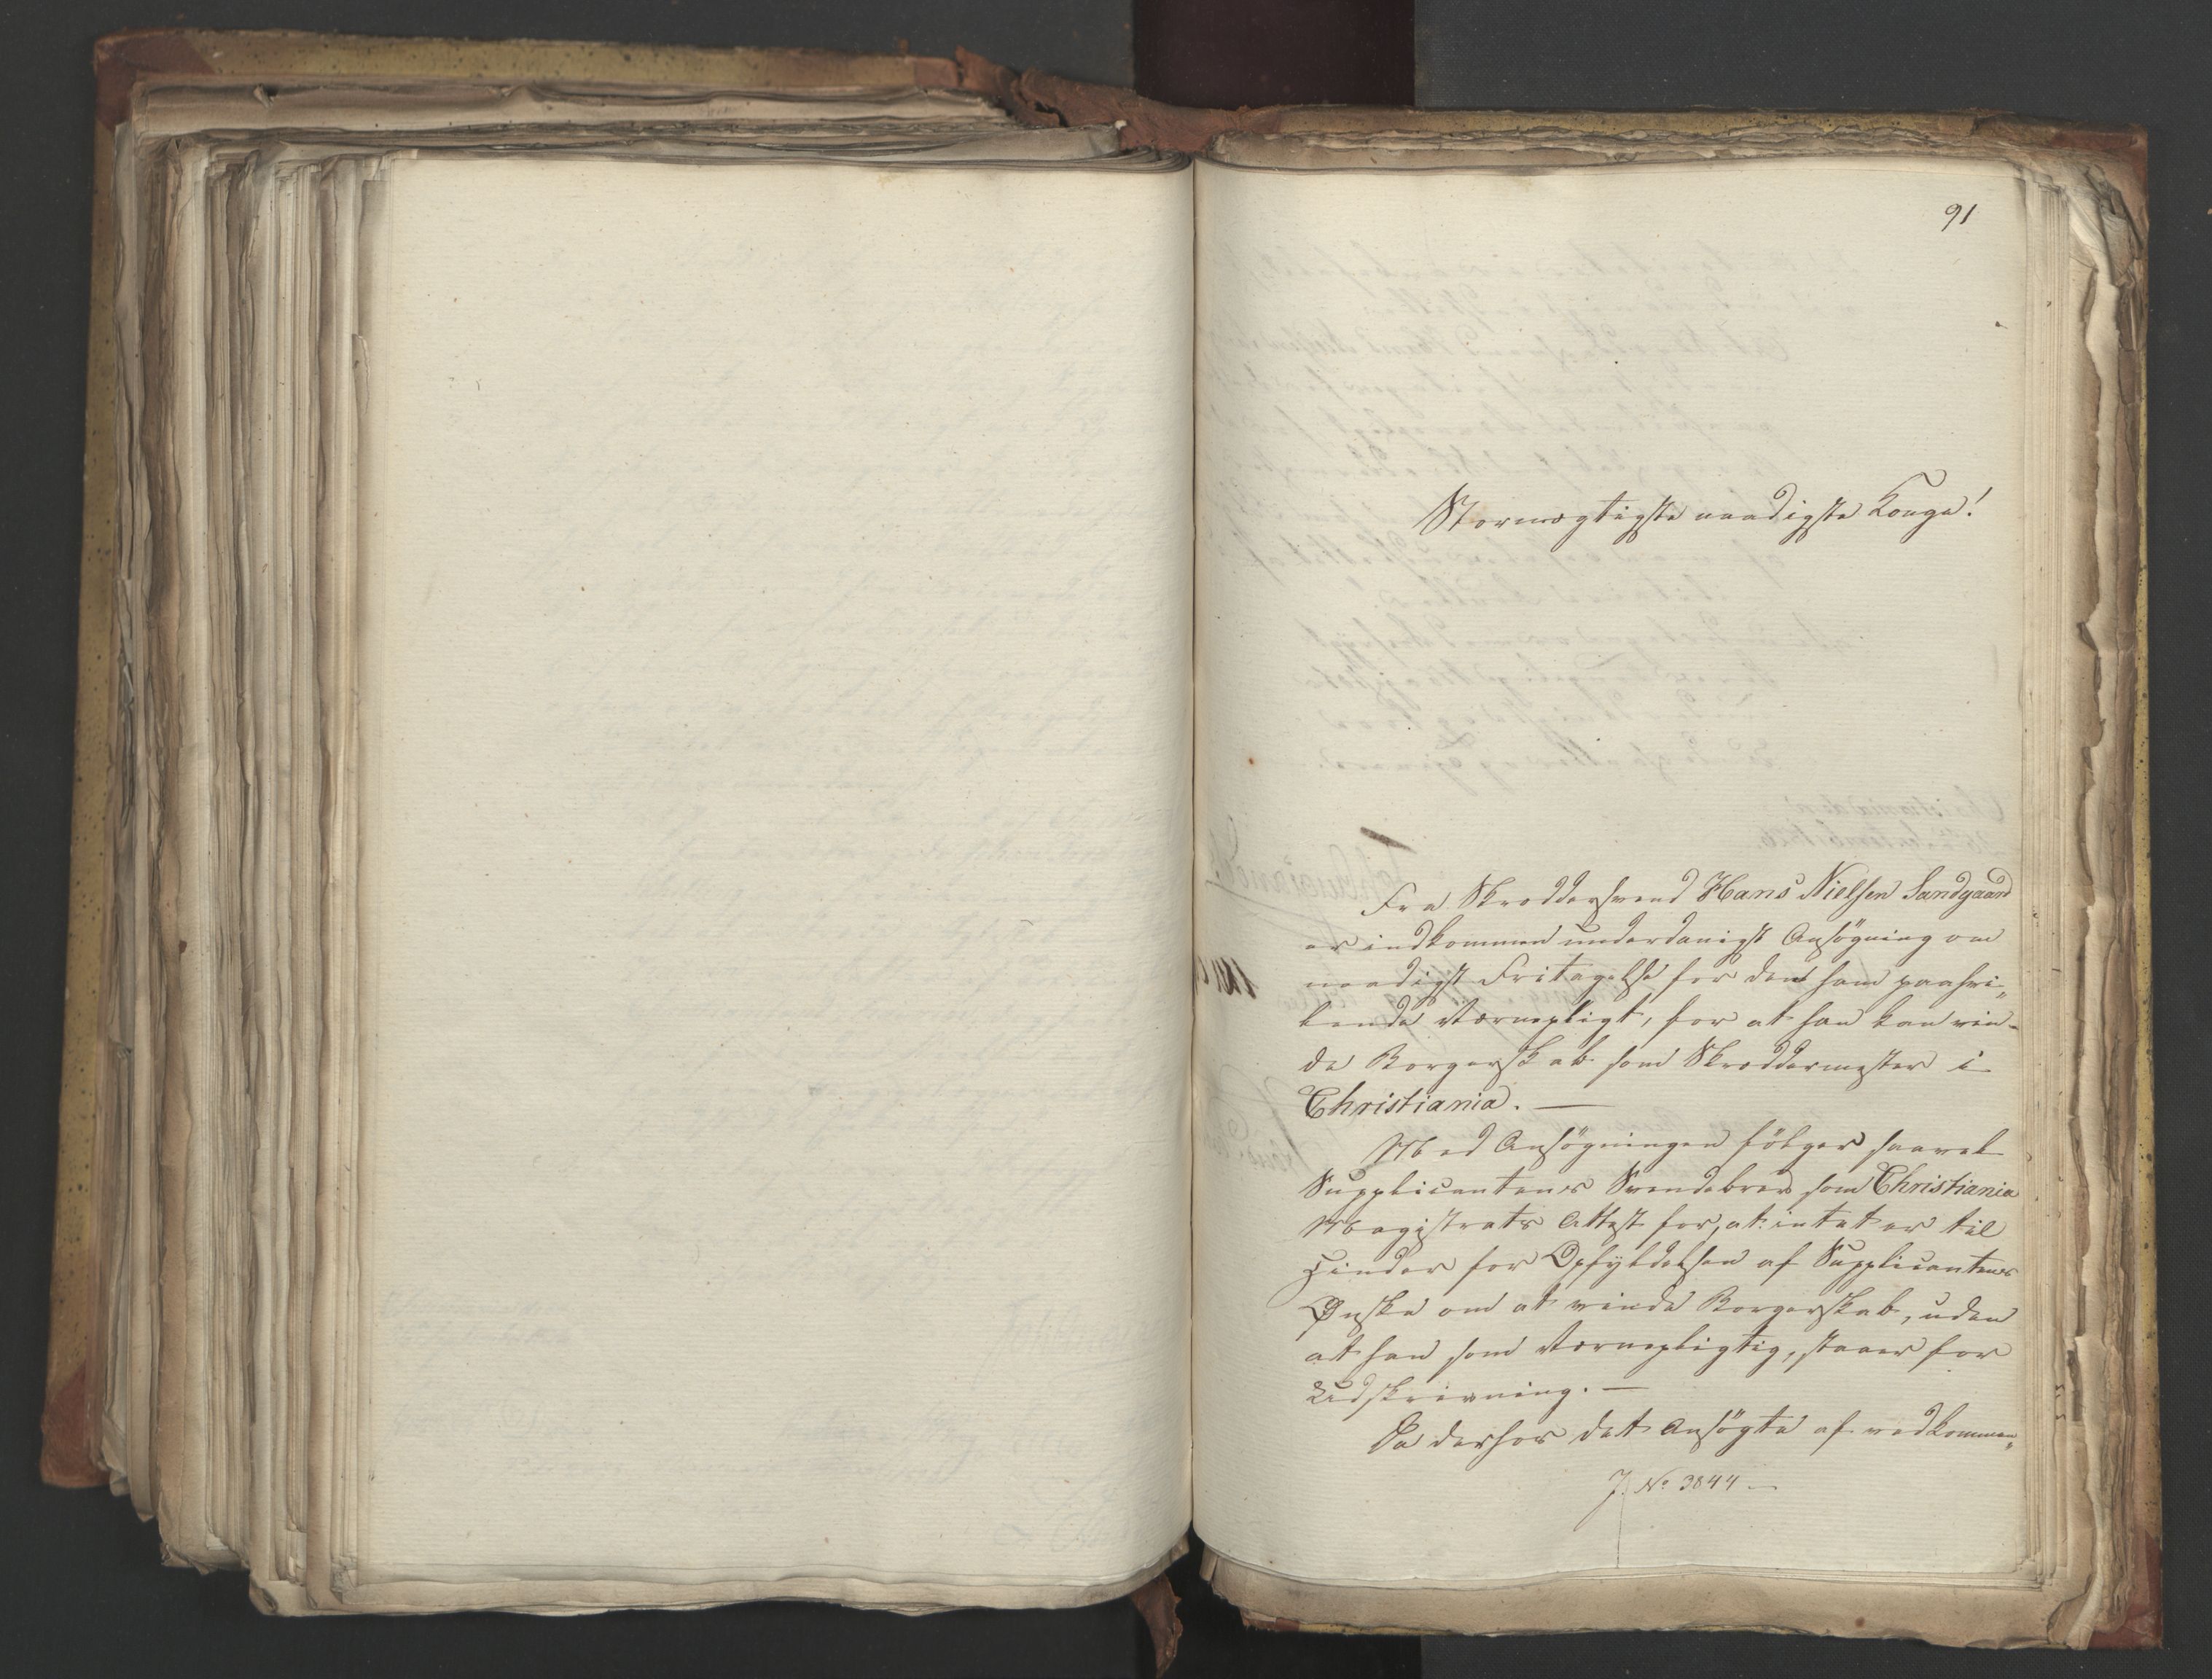 91
Stormægtigste naadigste Konge!
Fra Skræddersvend Hans Nielsen Sandgaard
er indkommen underdanigst Ansögning om
naadigst Fritagelse for den ham paahvi„
lende Værnepligt, for at han kan vin-
de Borgerskab som Skræddermester i
Christiania. —
Med Ansögningen fölger saavel
Supplicantens Svendebrev som Christiania
Magistrats Attest for, at intet er til
Hinder for Opfyldelsen af Supplicantens
Ønske om at vinde Borgerskab, uden
at han som Værnepligtig, staaer for
Udskrivning. —
Da derfor det Ansögte af vedkommen„
J. No 3844 —